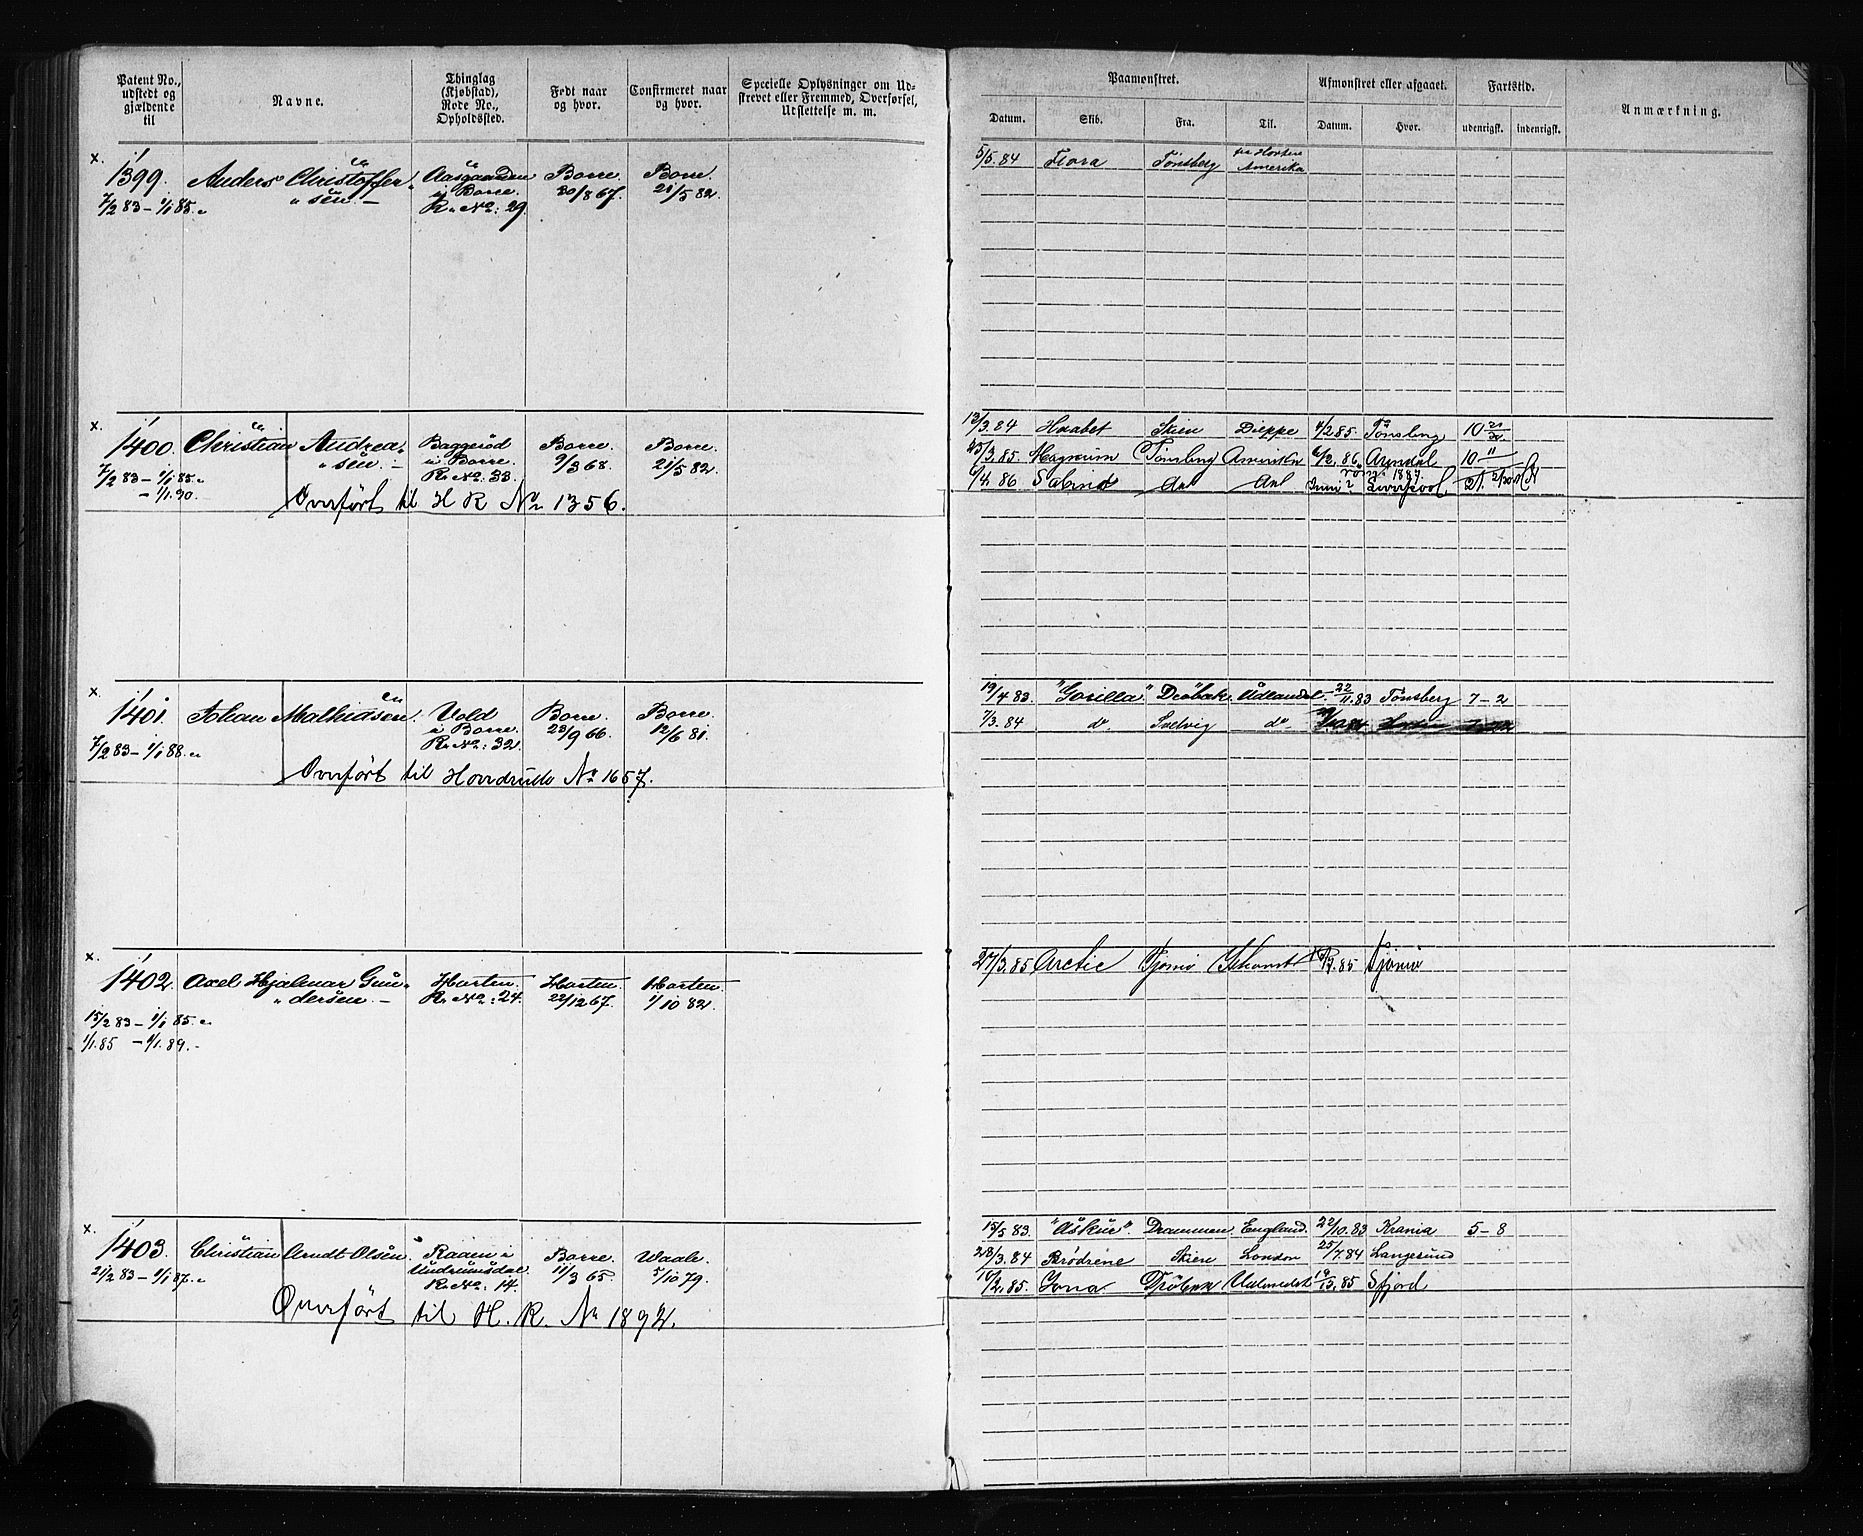 Patent No., udstedt og gjældende til
Navne.
Thinglag (Kjøbstad), Rode No., Opholdssted.
Født naar og hvor.
Confirmeret naar og hvor.
Specielle Oplysninger om Udskrevet eller Fremmed, Overførsel, Udslettelse m. m.
Paamønstret.
Afmønstret eller afgaaet.
Fartstid.
Anmærkning.
Datum. Skib. Fra. Til. Datum. Hvor. udenrigst. indenrigst.
x.
1399. Anders Christoffer„ Aasgaarden Borre. Borre.
„ sen. – i Borre. 30/8 67. 21/5 82.
7/2 83 – 1/1 85. R. No: 29.
5/5.84 Flora Tønsberg Amerika
x.
1400. Christian Andrea„ Baggerød Borre. Borre.
„ sen. – i Borre. 9/3 68. 21/5 82.
7/2 83 – 1/1 85. R. No: 33.
– 1/1.90.
Overført til H R No 1356.
13/3.84 Haabet Skien Dieppe 4/2 85 Tønsberg 10
25/3.85 Magnum Tønsberg Amerika 6/2.86 Arendal 10
6/4.86 Liverpool.
x.
1401. Johan Mathiasen. Vold Borre. Borre.
i Borre. 23/9 66. 12/6 81.
7/2 83 – 1/1 88. R. No: 32.
Overført til Hovedrulle No 1657.
19/4 83. "Gorilla" Drøbak Udlandet 22/11.83 Tønsberg 7 – 2
7/3.84 do. Svelvig do
x.
1402. Axel Hjalmar Gun„ Horten. Horten. Horten.
„ dersen. – R. No: 24. 22/12 67. 1/10 82.
15/2 83 – 1/1 85.
1/1.85 – 1/1.89. –
27/3.85 Arctic Tjømø Ishavet 85 Tjømø
x.
1403. Christian Arndt Olsen. Raaen i Borre. Waale.
Undrumsdal 11/3 65. 5/10 79.
21/2 83 – 1/1 87. R. No: 14.
Overført til H. R. No 1892.
15/5 83. "Askur". Drammen England. 22/10.83 Krania 5 – 8
28/3.84 Brødrene Skien London 25/7.84 Langesund
16/2.85. Drøbak Udlandet 85 Sfjord